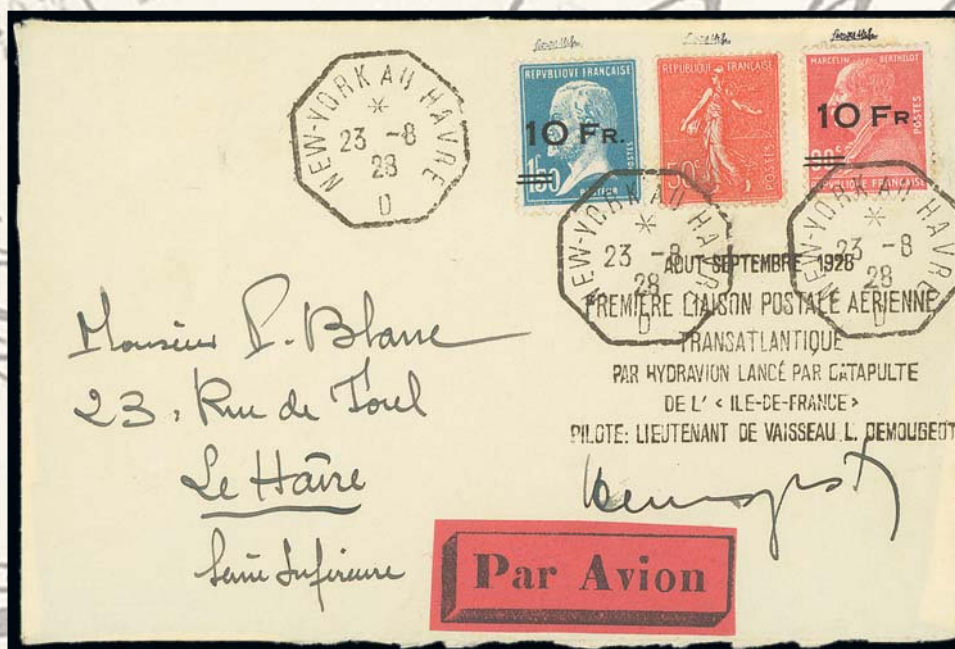 NEW-YORK AU HAVRE
23 -8
28
D
REPVBLIQUE FRANÇAISE
10 FR.
1F50
POSTES
PASTEUR
REPUBLIQUE FRANÇAISE
50c
POSTES
MARCELIN BERTHELOT
10 FR.
90c
POSTES
REPVBLIQUE FRANÇAISE
NEW-YORK AU HAVRE
23 -8
28
D
NEW-YORK AU HAVRE
23 -8
28
D
AOUT SEPTEMBRE 1928
PREMIERE LIAISON POSTALE AERIENNE
TRANSATLANTIQUE
PAR HYDRAVION LANCÉ PAR CATAPULTE
DE L' < ILE-DE-FRANCE >
PILOTE: LIEUTENANT DE VAISSEAU L. DEMOUGEOT
Demougeot
Monsieur P. Blanc
23, Rue de Toul
Le Hâvre
Seine Inférieure
Par Avion